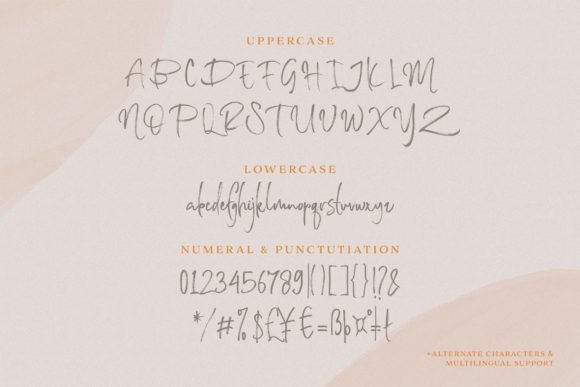 UPPERCASE
ABCDEFGHIJKLM
NOPQRSTUVWXYZ
LOWERCASE
abcdefghijklmnopqrstuvwxyz
NUMERAL & PUNCTUTIATION
0123456789|()[]{}!?&
*/#%$£¥€=Bþ¤°‡ł
+ALTERNATE CHARACTERS &
MULTILINGUAL SUPPORT